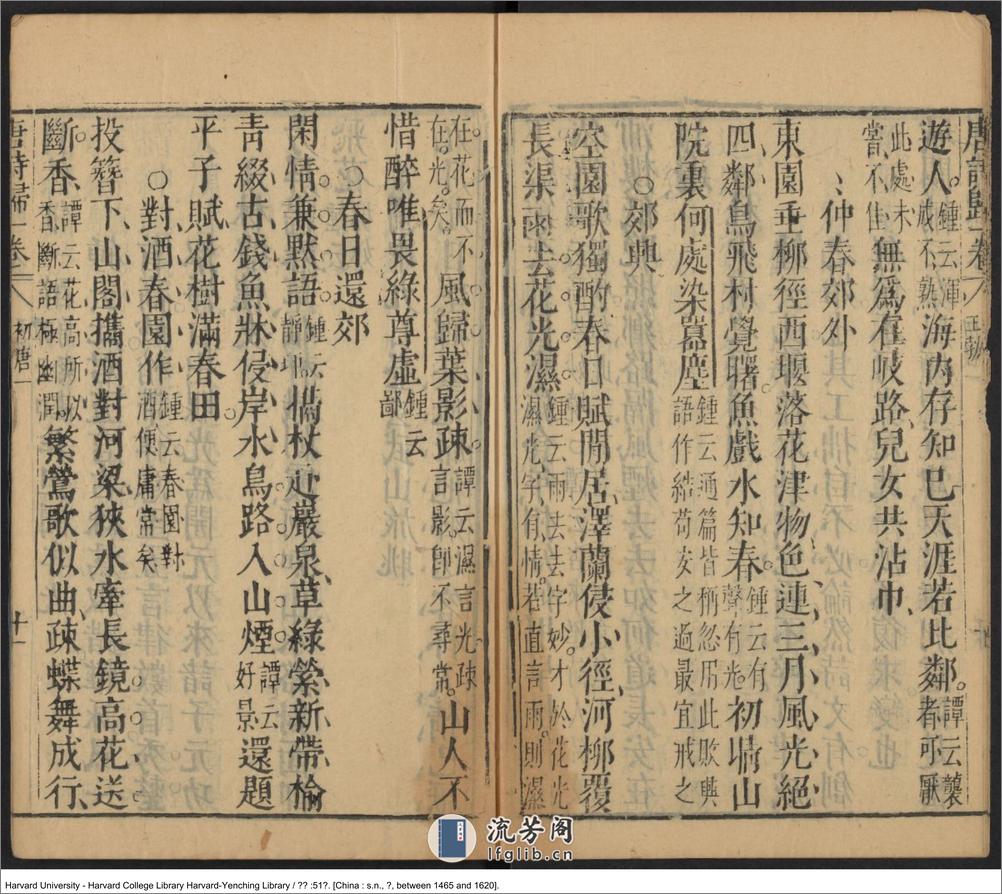 唐詩歸一卷八 王勃
遊人。鍾云渾成不熟海內存知己天涯若比鄰。譚云襲者可厭
此處未嘗不佳無爲在岐路兒女共沾巾
仲春郊外
東園垂柳徑西堰落花津物色連三月風光絕
四鄰鳥飛村覺曙魚戲水知春鍾云有聲有光初晴山
院裏何處染囂塵鍾云通篇皆稱忽用此敗興語作結苟安之過最宜戒之
○郊興
空園歌獨酌春日賦閒居澤蘭侵小徑河柳覆
長渠雨去花光濕鍾云雨去去字妙才於花光濕光字有情若直言雨則濕
在花而不在光矣。風歸葉影疎譚云濕言光疎言影卽不尋常。山人不
惜醉唯畏綠尊虛鍾云鄙
○春日還郊
閑情兼默語鍾云靜攜杖赴巖泉草綠縈新帶榆
靑綴古錢魚牀侵岸水鳥路入山煙譚云好景還題
平子賦花樹滿春田
○對酒春園作鍾云春園對酒便庸常矣
投簪下山閣攜酒對河梁狹水牽長鏡高花送
斷香譚云花高所以香斷語極幽潤繁鶯歌似曲疎蝶舞成行
唐詩歸一卷八 初唐一 十一
流芳阁
lfglib.cn
Harvard University - Harvard College Library Harvard-Yenching Library / ?? :51?. [China : s.n., ?, between 1465 and 1620].